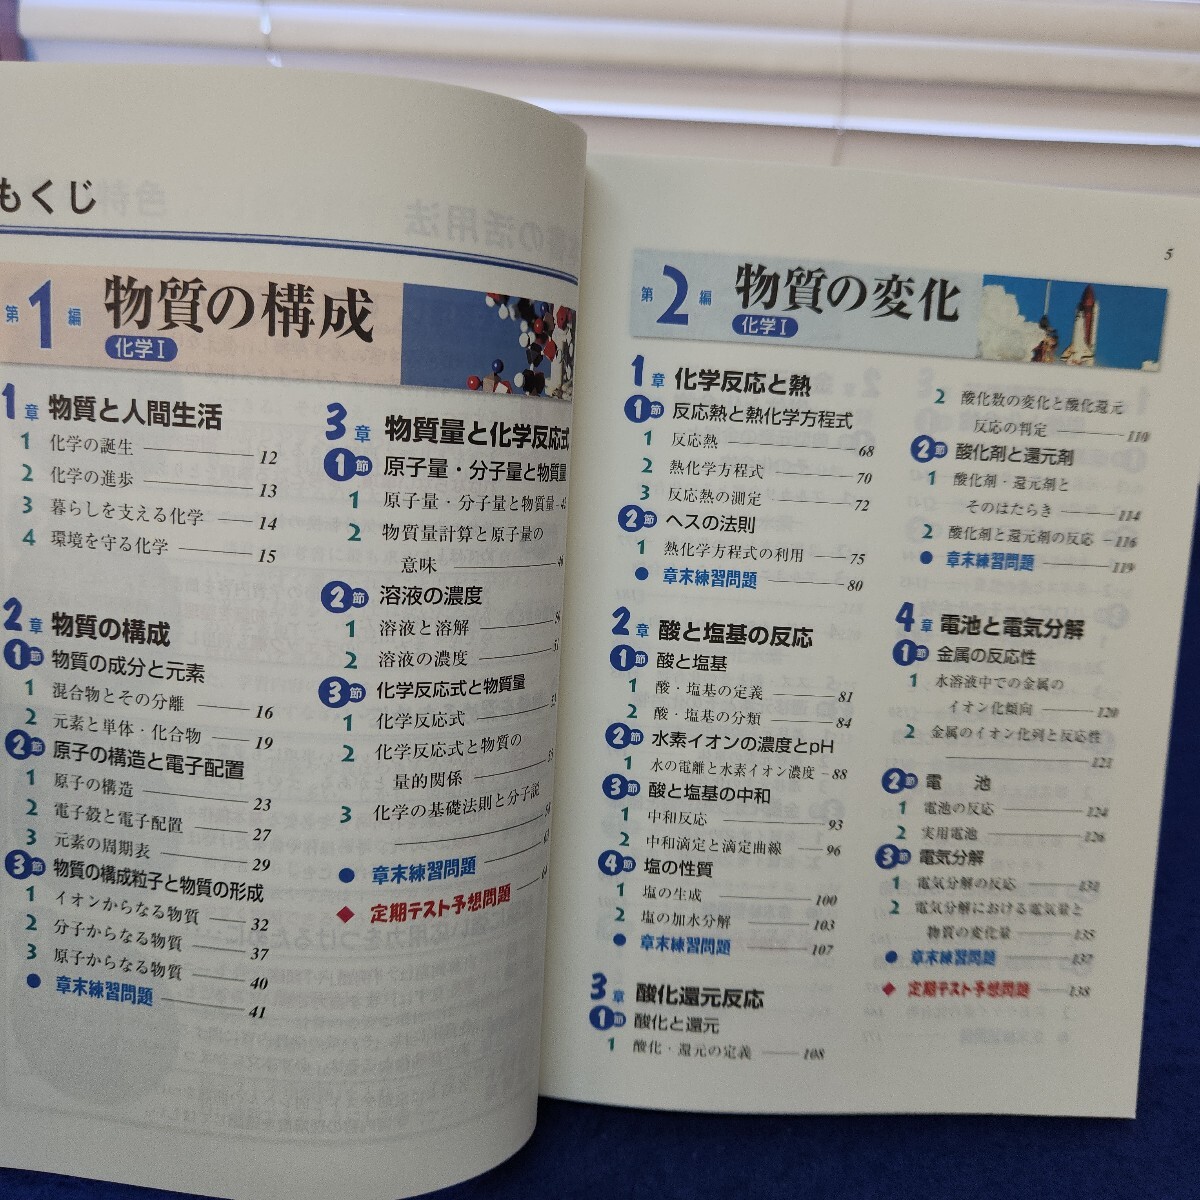 もくじ
第1編 物質の構成
化学Ⅰ
1章 物質と人間生活
1 化学の誕生 12
2 化学の進歩 13
3 暮らしを支える化学 14
4 環境を守る化学 15
2章 物質の構成
1節 物質の成分と元素
1 混合物とその分離 16
2 元素と単体・化合物 19
2節 原子の構造と電子配置
1 原子の構造 23
2 電子殻と電子配置 27
3 元素の周期表 29
3節 物質の構成粒子と物質の形成
1 イオンからなる物質 32
2 分子からなる物質 37
3 原子からなる物質 40
● 章末練習問題 41
3章 物質量と化学反応式
1節 原子量・分子量と物質量
1 原子量・分子量と物質量
2 物質量計算と原子量の
意味
2節 溶液の濃度
1 溶液と溶解
2 溶液の濃度
3節 化学反応式と物質量
1 化学反応式
2 化学反応式と物質の
量的関係
3 化学の基礎法則と分子説
● 章末練習問題
◆ 定期テスト予想問題
5
第2編 物質の変化
化学Ⅰ
1章 化学反応と熱
1節 反応熱と熱化学方程式
1 反応熱 68
2 熱化学方程式 70
3 反応熱の測定 72
2節 ヘスの法則
1 熱化学方程式の利用 75
● 章末練習問題 80
2章 酸と塩基の反応
1節 酸と塩基
1 酸・塩基の定義 81
2 酸・塩基の分類 84
2節 水素イオンの濃度とpH
1 水の電離と水素イオン濃度 88
3節 酸と塩基の中和
1 中和反応 93
2 中和滴定と滴定曲線 96
4節 塩の性質
1 塩の生成 100
2 塩の加水分解 103
● 章末練習問題 107
3章 酸化還元反応
1節 酸化と還元
1 酸化・還元の定義 108
2 酸化数の変化と酸化還元
反応の判定 110
2節 酸化剤と還元剤
1 酸化剤・還元剤と
そのはたらき 114
2 酸化剤と還元剤の反応 116
● 章末練習問題 119
4章 電池と電気分解
1節 金属の反応性
1 水溶液中での金属の
イオン化傾向 120
2 金属のイオン化列と反応性
121
2節 電 池
1 電池の反応 124
2 実用電池 126
3節 電気分解
1 電気分解の反応 131
2 電気分解における電気量と
物質の変化量 135
● 章末練習問題 137
◆ 定期テスト予想問題 138